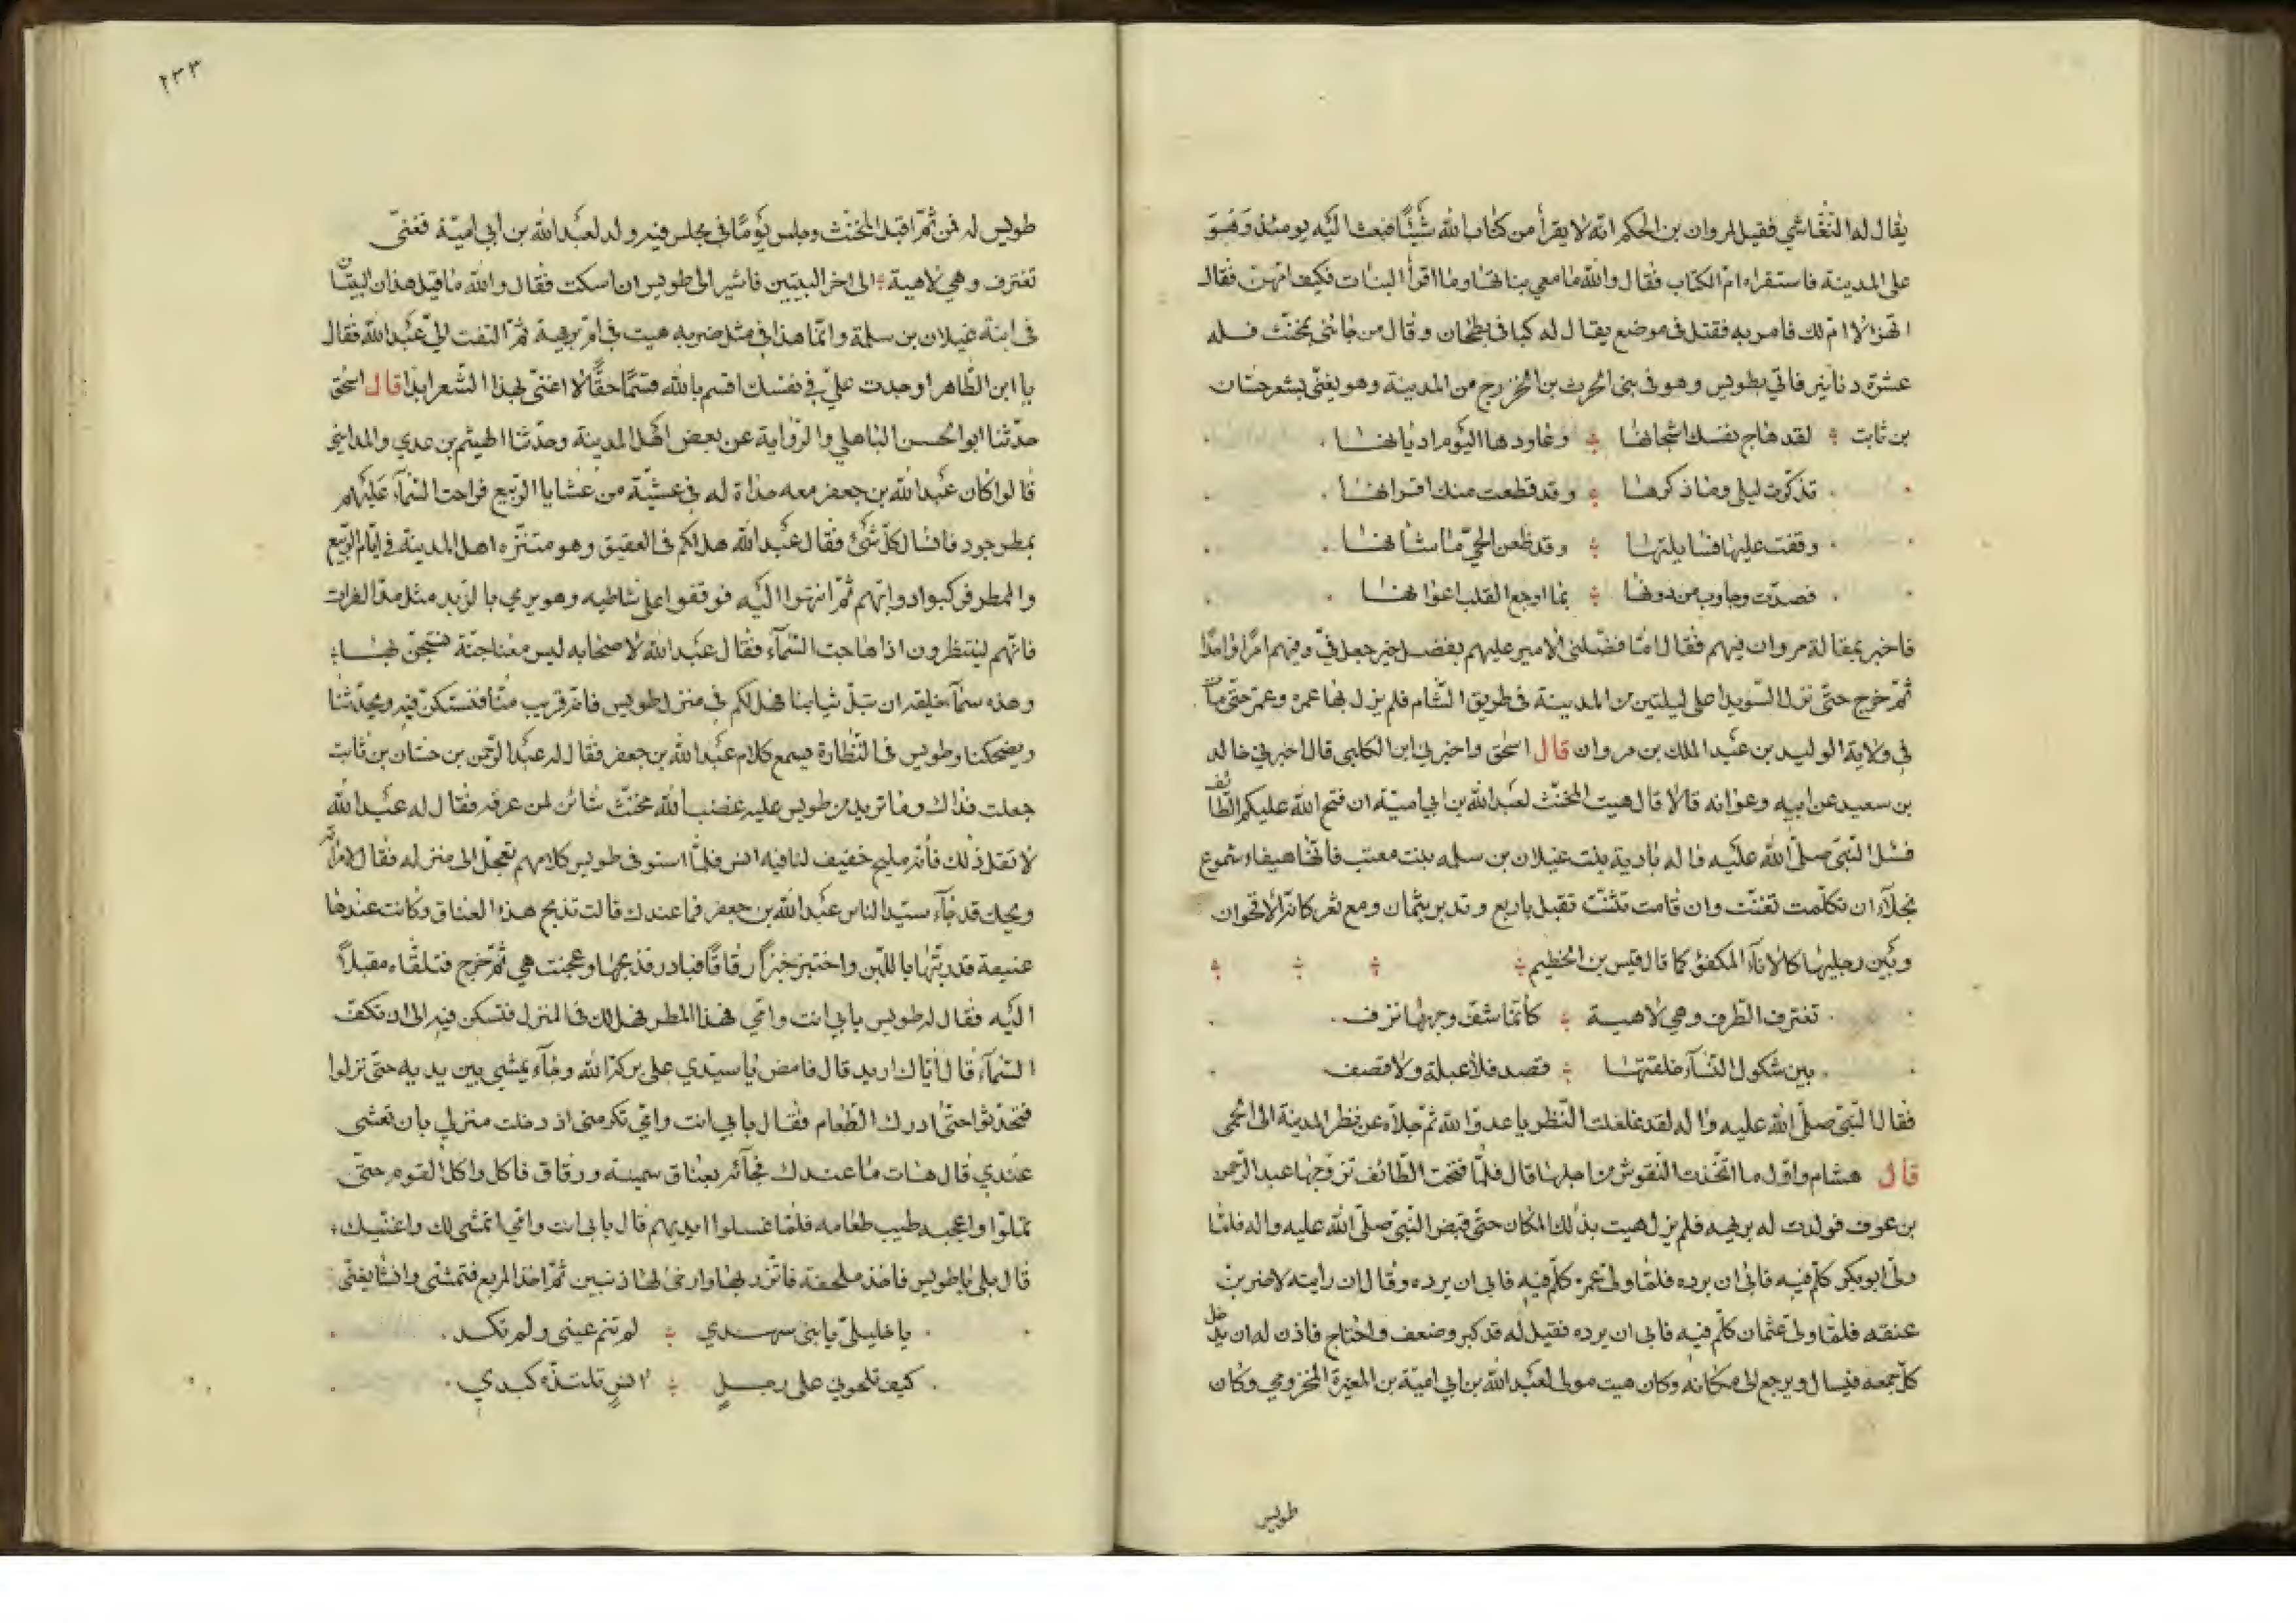 يقال له النغاشي فقيل لمروان بن الحكم انه لا يقرأ من كتاب الله شيئًا فبعث اليه يومئذ وهو
على المدينة فاستقراه ام الكتاب فقال والله ما معي بناتها وما اقرأ البنات فكيف امهن فقال
اتهزا لا ام لك فامر به فقتل في موضع يقال له بطحان وقال من جاءني بمخنث فله
عشرة دنانير فاتي بطويس وهو في بني الحرث بن الخزرج من المدينة وهو يغني بشعر حسان
بن ثابت لقد هاج نفسك اشجانها وعاودها اليوم اديانها
تذكرت ليلى وماذا ذكرها وقد قطعت منك اقرانها
وقفت عليها فسايلتها وقد ظعن الحي ما شانها
فصدت وجاوب من دونها بما اوجع القلب اعوانها
فاخبر بمقالة مروان فيهم فقال اما فضلني الامير عليهم بفضل خير جعل في وفيهم امرا واحدًا
ثم خرج حتى نزل السويدا على ليلتين من المدينة في طريق الشام فلم يزل بها عمره وعمر حتى مات
في ولاية الوليد بن عبد الملك بن مروان قال اسحق واخبرني ابن الكلبي قال اخبرني خالد
بن سعيد عن ابيه وعوانه قالا قال هيت المخنث لعبد الله بن ابي امية ان فتح الله عليكم الطائف
فسل النبي صلى الله عليه واله بادية بنت غيلان بن سلمه بنت معتب فانها هيفاء شموع
نجلاء ان تكلمت تغنت وان قامت تثنت تقبل باربع وتدبر بثمان ومع ثغر كانه الاقحوان
وبين رجليها كالاناء المكفؤ كما قال قيس بن الخطيم
تغترف الطرف وهي لاهية كأنما شف وجهها نزف
بين شكول النساء خلقتها قصد فلا عبلة ولا قصف
فقال النبي صلى الله عليه واله لقد غلغلت النظر يا عدو الله ثم جلاه عن المدينة الى الحمى
قال هشام واول ما اتخذت النقوش من اجلها قال فلما فتحت الطائف تزوجها عبد الرحمن
بن عوف فولدت له بريهه فلم يزل هيت بذلك المكان حتى قبض النبي صلى الله عليه واله فلما
ولى ابو بكر كلم فيه فابى ان يرده فلما ولى عمر كلم فيه فابى ان يرده وقال ان رايته لاضربن
عنقه فلما ولى عثمان كلم فيه فابى ان يرده فقيل له قد كبر وضعف واحتاج فاذن له ان يدخل
كل جمعه فيسال ويرجع الى مكانه وكان هيت مولى لعبد الله بن ابي امية بن المغيرة المخزومي وكان
طويس
٢٣٣
طويس له فمن ثم اقبل المخنث وجلس يومًا في مجلس فيه ولد لعبد الله بن ابي امية فغنى
تغترف وهي لاهية الى اخر البيتين فاشير الى طويس ان اسكت فقال والله ما قيل هذان البيتان
في ابنة غيلان بن سلمة وانما هذا في مثل ضربه هيت في ام بريهة ثم التفت الى عبد الله فقال
يا ابن الطاهر اوجدت علي في نفسك اقسم بالله قسمًا حقًا لا اغني بهذا الشعر ابدا قال اسحق
حدثنا ابو الحسن الباهلي والرواية عن بعض اهل المدينة وحدثنا الهيثم بن عدي والمدايني
قالوا كان عبد الله بن جعفر معه له في عشية من عشايا الربيع فراحت السماء عليهم
بمطر جود فاسال كل شيء فقال عبد الله هل لكم في العقيق وهو متنزه اهل المدينة في ايام الربيع
والمطر فركبوا دوابهم ثم انتهوا اليه فوقفوا على شاطيه وهو يرمي بالزبد مثل مد الفرات
فانهم لينتظرون اذا هاجت السماء فقال عبد الله لاصحابه ليس معنا جنة نستجن بها
وهذه سماء خليقه ان تبل ثيابنا فهل لكم في منزل طويس فانه قريب منا فنستكن فيه ويحدثنا
ويضحكنا وطويس في النظارة يسمع كلام عبد الله بن جعفر فقال له عبد الرحمن بن حسان بن ثابت
جعلت فداك وما تريد من طويس عليه غضب الله مخنث شائن لمن عرفه فقال له عبد الله
لا تقل ذلك فانه مليح خفيف لنا فيه انس فلما استوفى طويس كلامهم تعجل الى منزله فقال لامراته
ويحك قد جاء سيد الناس عبد الله بن جعفر فما عندك قالت تذبح هذه العناق وكانت عندها
عنيقة قد ربتها باللبن واختبز خبزا رقاقًا فبادر فذبحها وعجنت هي ثم خرج فتلقاه مقبلًا
اليه فقال له طويس بابي انت وامي هذا المطر فهل لك في المنزل فتسكن فيه الى ان تكف
السماء قال اياك اريد قال فامض يا سيدي على بركة الله وجاء يمشي بين يديه حتى نزلوا
فتحدثوا حتى ادرك الطعام فقال بابي انت وامي تكرمني اذ دخلت منزلي بان تعشى
عندي قال هات ما عندك فجاءه بعناق سمينة ورقاق فاكل واكل القوم حتى
تملوا واعجبه طيب طعامه فلما غسلوا ايديهم قال بابي انت وامي اتمشى لك واغنيك
قال بلى يا طويس فاخذ ملحفة فاتزر بها وارخى لها ذنبين ثم اخذ المربع فتمشى وانشا يغني
يا خليلي يا بني سهدي لم تنم عيني ولم تكد
كيف تلحوني على رجل انس تلتذه كبدي